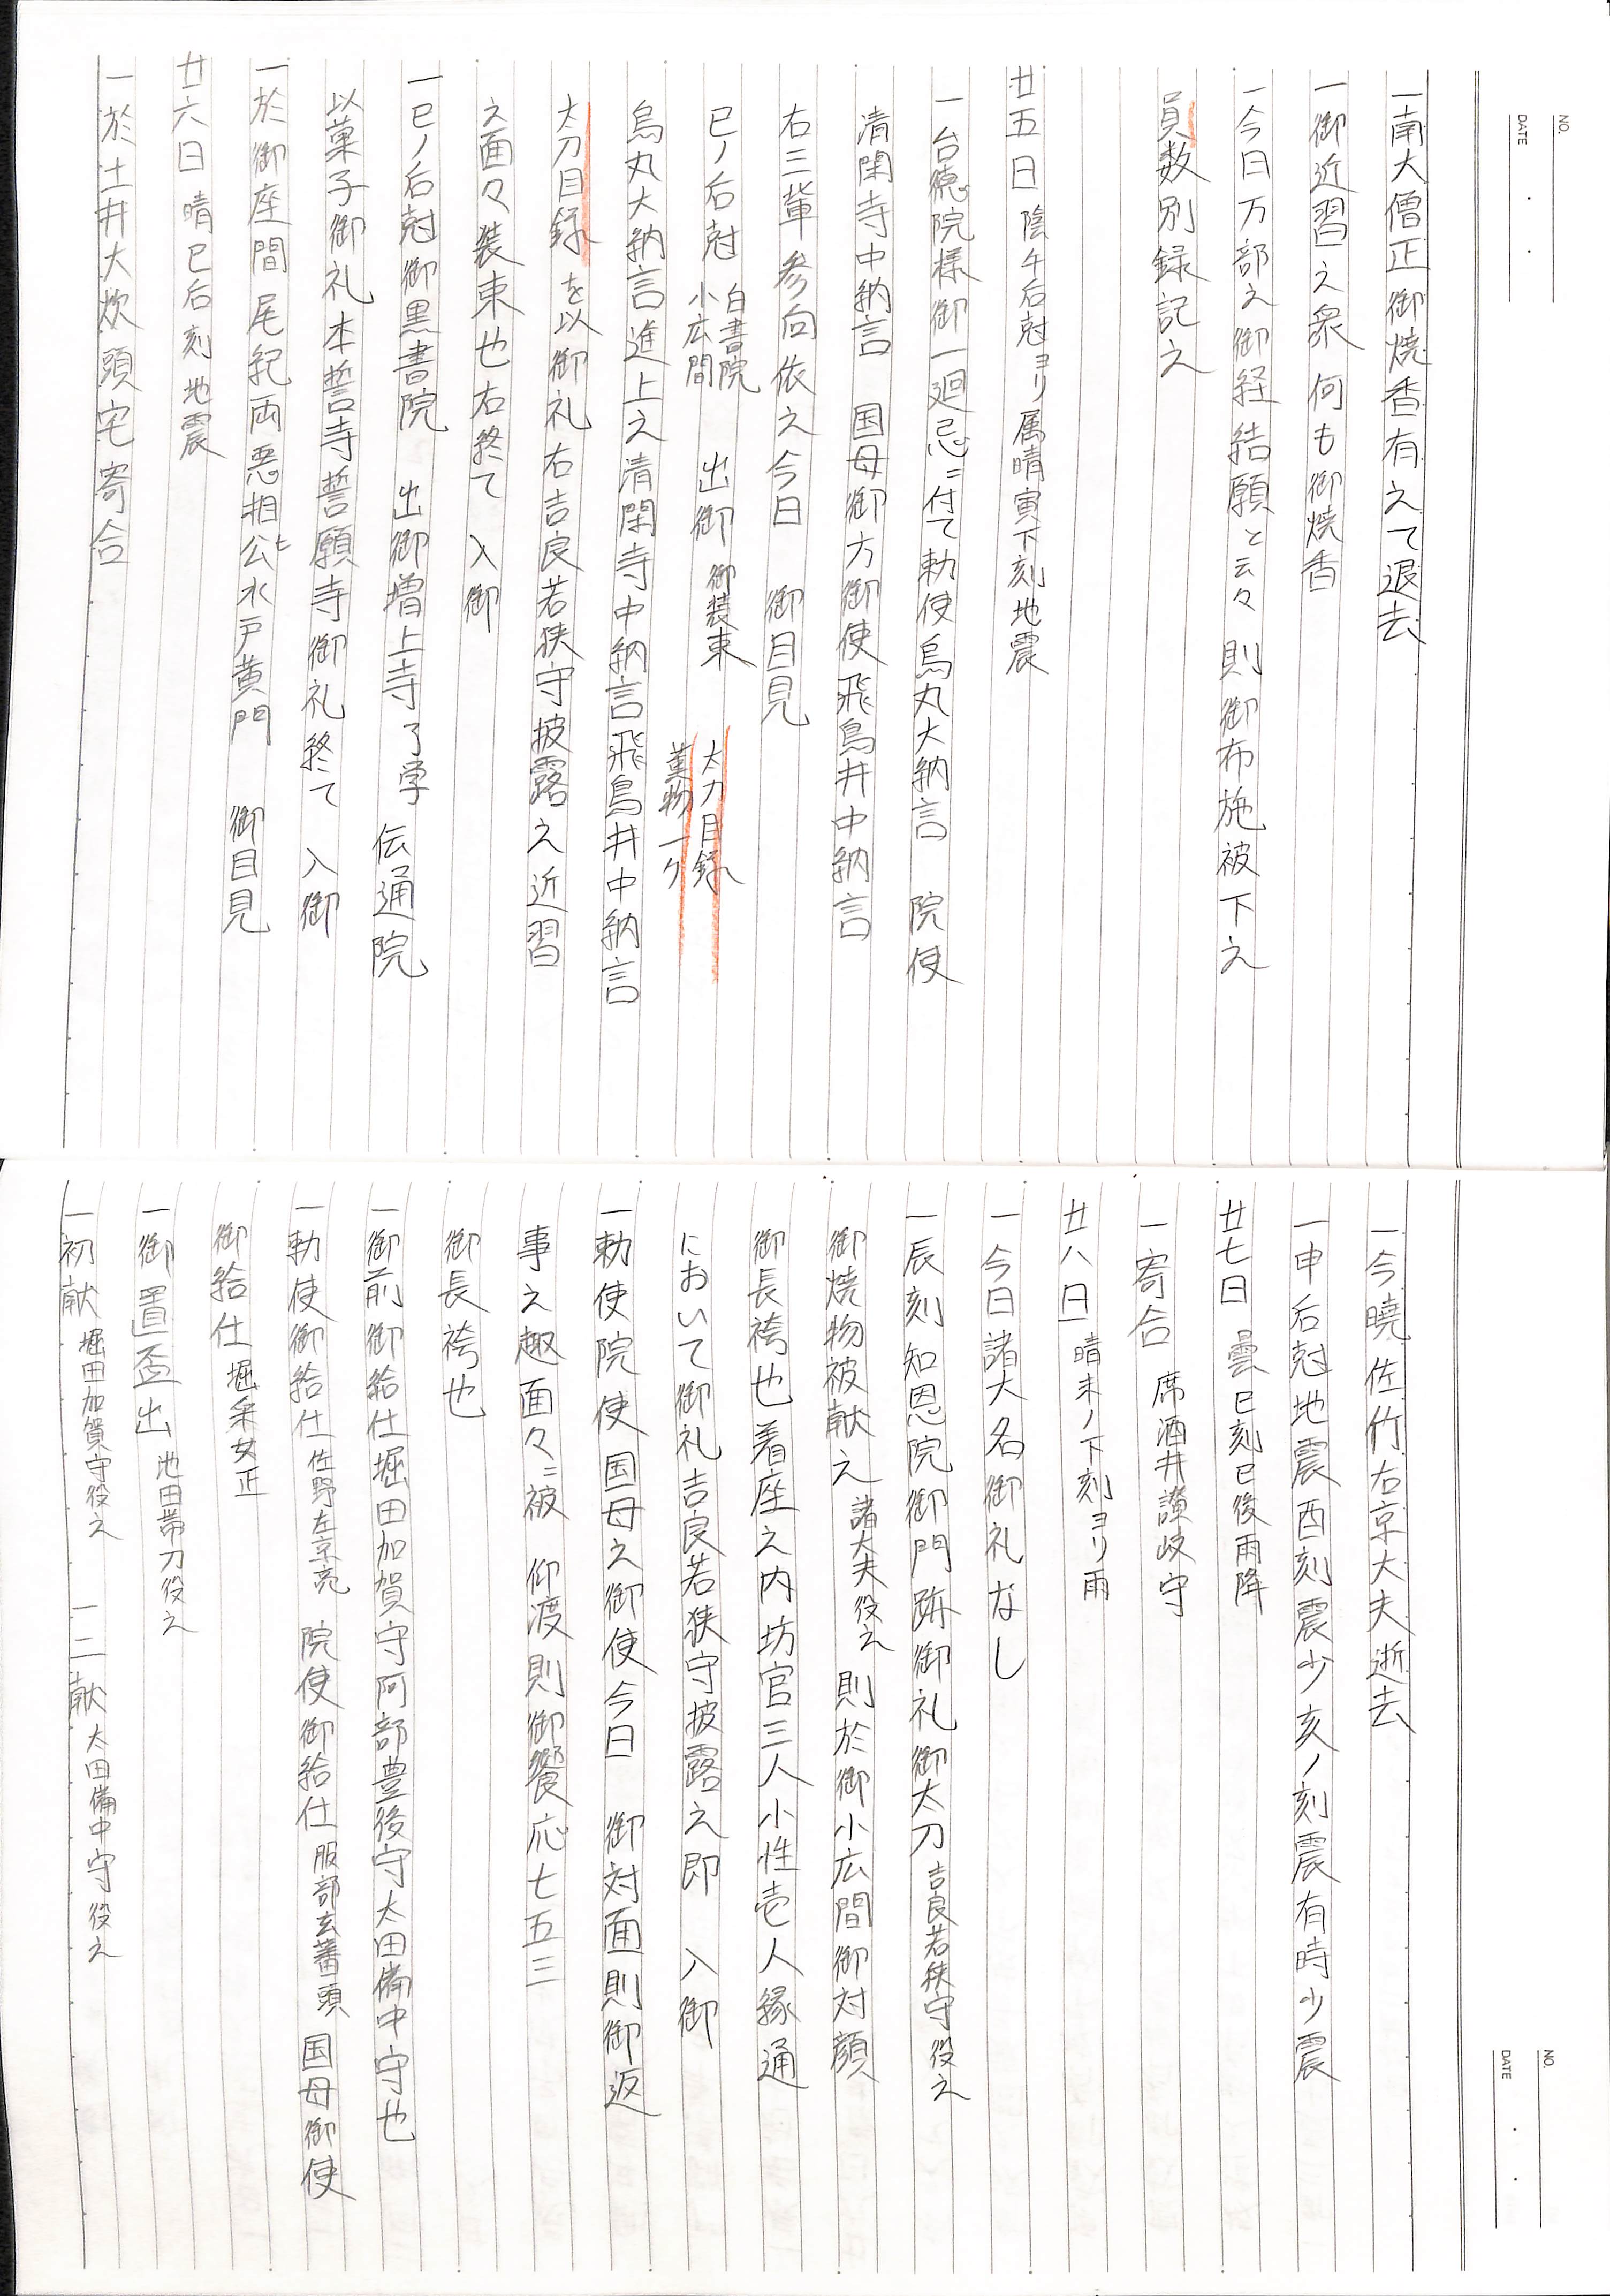 NO.
DATE
一南大僧正御焼香有之て退去
一御近習之衆何も御焼香
一今日万部之御経結願と云々 則御布施被下之
員数別録記之
廿五日 陰午后尅ヨリ属晴寅下刻地震
一台徳院様御一廻忌ニ付て勅使烏丸大納言 院使
清閑寺中納言 国母御方御使飛鳥井中納言
右三輩参向依之今日 御目見
巳ノ后尅 白書院 小広間 出御 御装束 太刀目録 薫物一ツ
烏丸大納言進上之清閑寺中納言飛鳥井中納言
太刀目録を以御礼右吉良若狭守披露之近習
之面々装束也右終て 入御
一巳ノ后尅御黒書院 出御増上寺了学 伝通院
以菓子御礼本誓寺誓願寺御礼終て 入御
一於御座間尾紀両悪相公ヒ水戸黄門 御目見
廿六日 晴巳后刻地震
一於土井大炊頭宅寄合
NO.
DATE
一今暁佐竹右京大夫逝去
一申后尅地震酉刻震少亥ノ刻震有時少震
廿七日 曇巳刻巳後雨降
一寄合 席酒井讃岐守
廿八日 晴未ノ下刻ヨリ雨
一今日諸大名御礼なし
一辰刻知恩院御門跡御礼御太刀 吉良若狭守役之
御焼物被献之 諸大夫役之 則於御小広間御対顔
御長袴也着座之内坊官三人小性壱人縁通
において御礼吉良若狭守披露之即 入御
一勅使院使国母之御使今日 御対面則御返
事之趣面々ニ被 仰渡則御饗応七五三
御長袴也
一御前御給仕堀田加賀守阿部豊後守太田備中守也
一勅使御給仕 佐野左京亮 院使御給仕 服部玄蕃頭 国母御使
御給仕 堀采女正
一御置盃出 池田帯刀役之
一初献 堀田加賀守役之 一二献 太田備中守役之